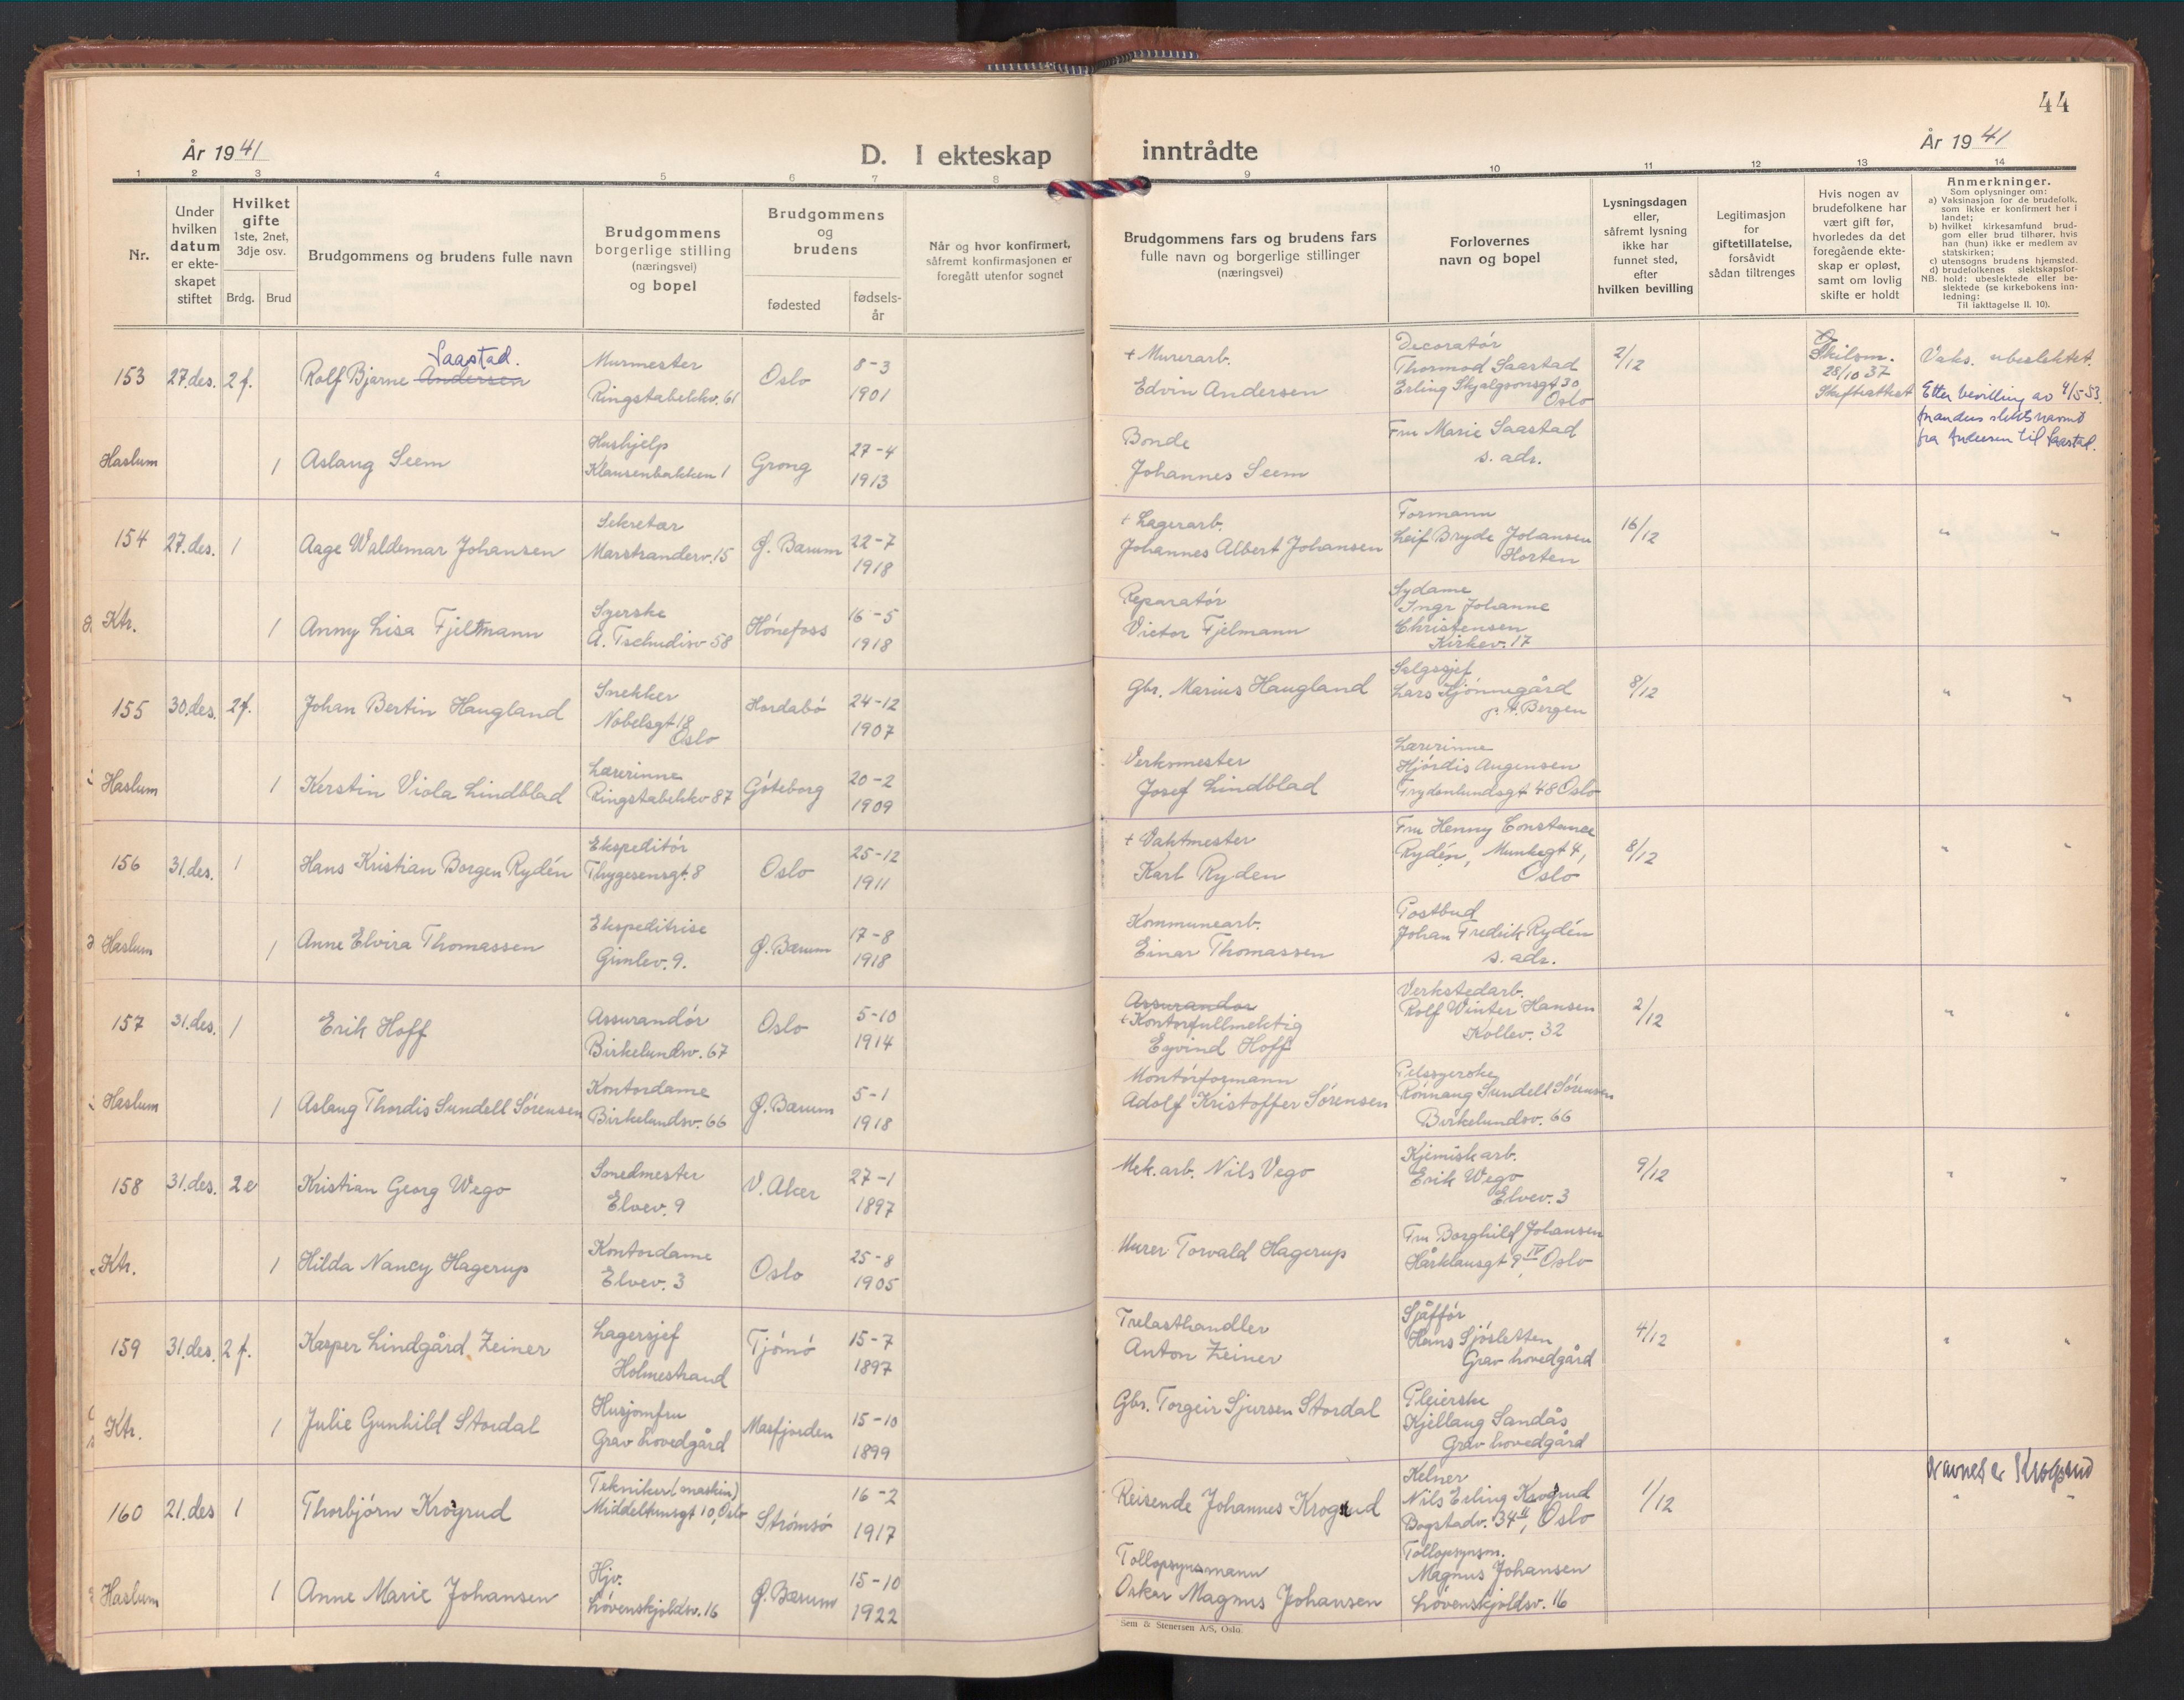 44
År 1941
D. I ekteskap
inntrådte
År 1941
1 2 3 4 5 6 7 8 9 10 11 12 13 14
Nr.
Under
hvilken
datum
er ekte-
skapet
stiftet
Hvilket
gifte
1ste, 2net,
3dje osv.
Brdg. Brud
Brudgommens og brudens fulle navn
Brudgommens
borgerlige stilling
(næringsvei)
og bopel
Brudgommens
og
brudens
fødested
fødsels-
år
Når og hvor konfirmert,
såfremt konfirmasjonen er
foregått utenfor sognet
Brudgommens fars og brudens fars
fulle navn og borgerlige stillinger
(næringsvei)
Forlovernes
navn og bopel
Lysningsdagen
eller,
såfremt lysning
ikke har
funnet sted,
efter
hvilken bevilling
Legitimasjon
for
giftetillatelse,
forsåvidt
sådan tiltrenges
Hvis nogen av
brudefolkene har
vært gift før,
hvorledes da det
foregående ekte-
skap er opløst,
samt om lovlig
skifte er holdt
Anmerkninger.
Som oplysninger om:
a) Vaksinasjon for de brudefolk,
som ikke er konfirmert her i
landet;
b) hvilket kirkesamfund brud-
gom eller brud tilhører, hvis
han (hun) ikke er medlem av
statskirken;
c) utensogns brudens hjemsted.
d) brudefolkenes slektskapsfor-
NB. hold: ubeslektede eller be-
slektede (se kirkebokens inn-
ledning:
Til iakttagelse II. 10).
153 27.des. 2f. Rolf Bjarne Andersen Saastad.
Murmester
Ringstabekkv. 61
Oslo
8-3
1901
+ Murerarb.
Edvin Andersen
Decoratör
Thormod Saastad
Erling Skjalgsonsgt 30,
Oslo
2/12
Skilsm.
28/10 37
Skifteattest
Vaks. ubeslektet.
Etter bevilling av 4/5-53.
forandres slektsnavnet
fra Andersen til Saastad.
Haslum 1 Aslaug Seem
Hushjelp
Klausenbakken 1
Grong
27-4
1913
Bonde
Johannes Seem
Fru Marie Saastad
s. adr.
154 27.des. 1 Aage Waldemar Johansen
Sekretær
Marstranderv. 15
Ø. Bærum
22-7
1918
+ Lagerarb.
Johannes Albert Johansen
Formann
Leif Bryde Johansen
Horten
16/12
" "
Ktr. 1 Anny Lisa Fjeltmann
Syerske
A. Tschudisv 58
Hönefoss
16-5
1918
Reparatör
Victor Fjelmann
Sydame
Ingr Johanne
Christensen
Kirkev. 17
155 30.des. 2f. Johan Bertin Haugland
Snekker
Nobelsgt 18
Oslo
Hordabö
24-12
1907
Gbr. Marius Haugland
Salgssjef
Lars Kjönnegård
p.t. Bergen
8/12
" "
Haslum 1 Kerstin Viola Lindblad
Lærerinne
Ringstabekkv 87
Göteborg
20-2
1909
Verksmester
Josef Lindblad
Lærerinne
Hjördis Augensen
Frydenlundsgt 48 Oslo
156 31.des. 1 Hans Kristian Borgen Rydén
Ekspeditör
Thygesensgt. 8
Oslo
25-12
1911
+ Vaktmester
Karl Ryden
Fru Henny Constance
Rydén, Munkegt 4,
Oslo
8/12
" "
Haslum 1 Anne Elvira Thomassen
Ekspeditrise
Gimlev. 9.
Ø. Bærum
17-8
1918
Kommunearb.
Einar Thomassen
Postbud
Johan Fredrik Rydén
s. adr.
157 31.des. 1 Erik Hoff
Assurandör
Birkelundsv. 67
Oslo
5-10
1914
Assurandör
+ Kontorfullmektig
Eyvind Hoff
Verkstedarb.
Rolf Winter Hansen
Kollev. 32
2/12
" "
Haslum 1 Aslaug Thordis Sundell Sörensen
Kontordame
Birkelundsv. 66
Ø. Bærum
5-1
1918
Montörformann
Adolf Kristoffer Sörensen
Pelssyerske
Rönnaug Sundell Sörensen
Birkelundsv. 66
158 31.des. 2e Kristian Georg Wego
Smedmester
Elvev. 9
V. Aker
27-1
1897
Mek. arb. Nils Vego
Kjemisk arb.
Erik Wego
Elvev. 3
9/12
" "
Ktr. 1 Hilda Nancy Hagerup
Kontordame
Elvev. 3
Oslo
25-8
1905
Murer Torvald Hagerup
Fru Borghild Johansen
Hårklausgt 9 IV Oslo
159 31.des. 2f. Kasper Lindgård Zeiner
Lagersjef
Holmestrand
Tjömö
15-7
1897
Trelasthandler
Anton Zeiner
Sjåfför
Hans Sjösletten
Grav hovedgård
4/12
" "
Ktr. 1 Julie Gunhild Stordal
Husjomfru
Grav hovedgård
Masfjorden
15-10
1899
Gbr. Torgeir Sjursen Stordal
Pleierske
Kjellaug Sandås
Grav hovedgård
160 21.des 1 Thorbjörn Krogrud
Tekniker (maskin)
Middelthunsgt 10, Oslo
Strömsö
16-2
1917
Reisende Johannes Krogsrud
Kelner
Nils Erling Krogrud
Bogstadv. 34 II, Oslo
1/12
Navnet er Krogsrud
" "
Haslum 1 Anne Marie Johansen
Hjv.
Lövenskjoldsv. 16
Ø. Bærum
15-10
1922
Tollopsynsmann
Oskar Magnus Johansen
Tollopsynsm.
Magnus Johansen
Lövenskjoldsv. 16
Sem & Stenersen A/S, Oslo.